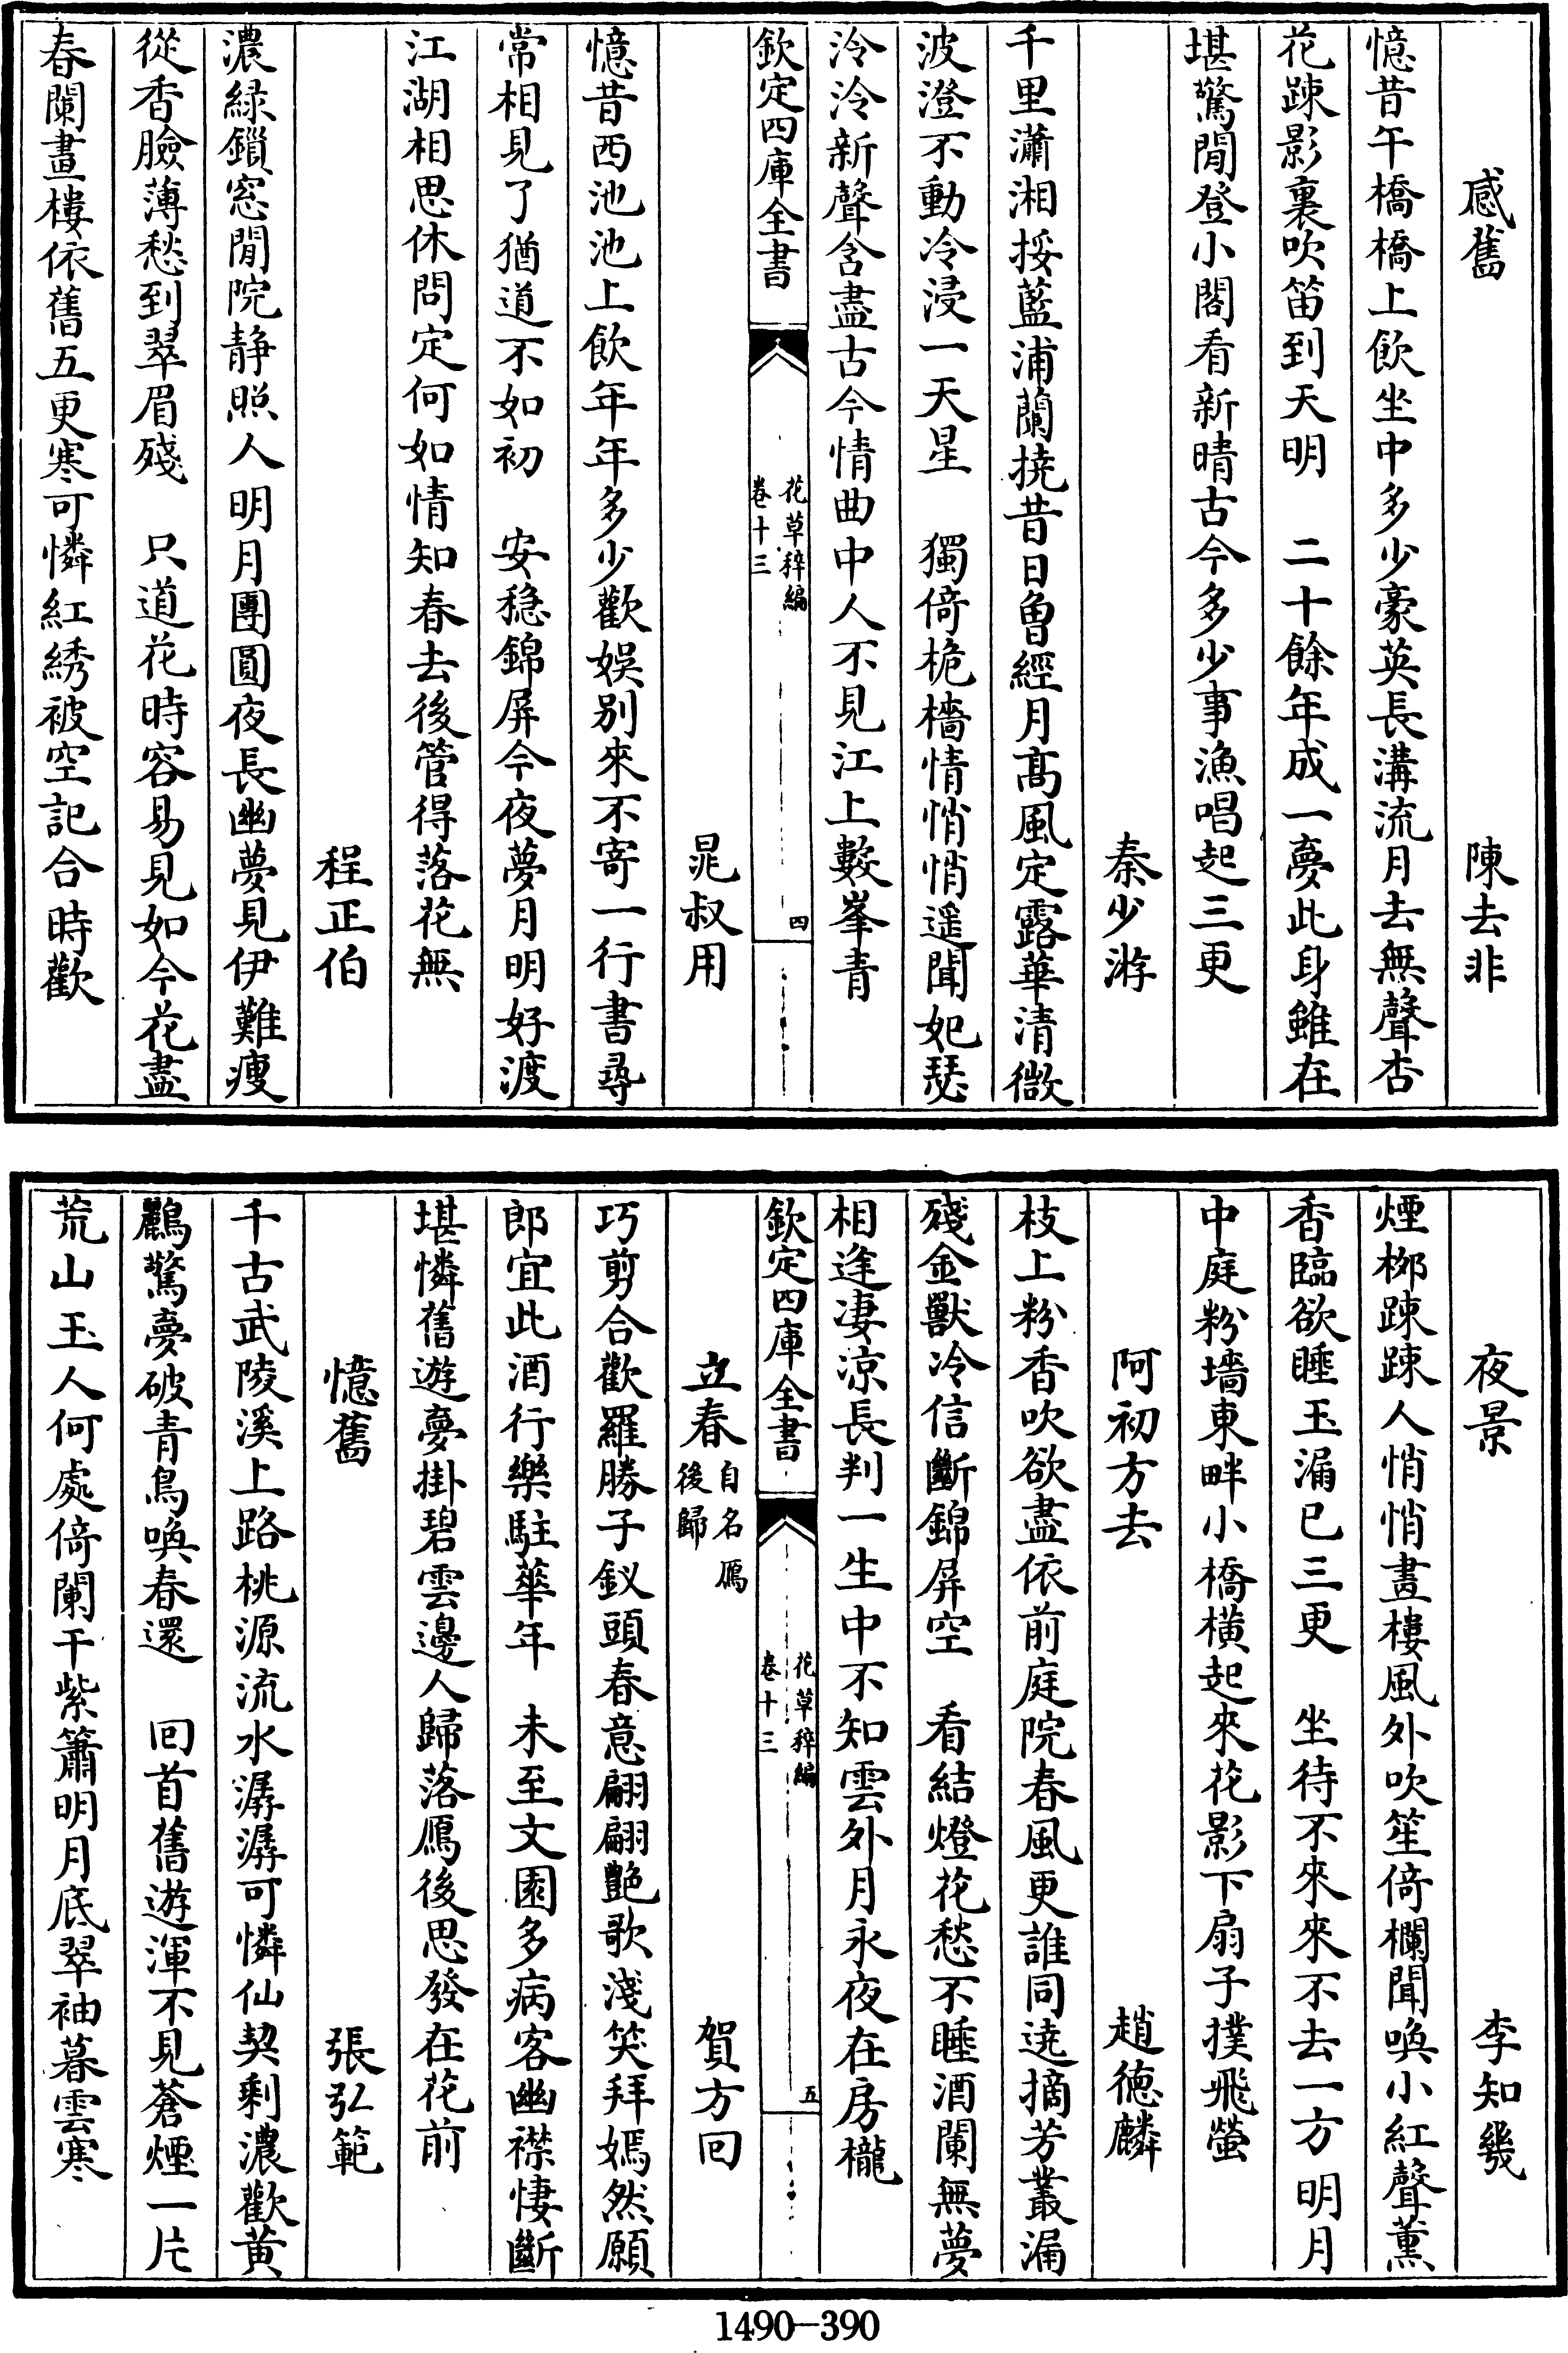 感舊　陳去非
憶昔午橋橋上飲坐中多少豪英長溝流月去無聲杏
花踈影裏吹笛到天明　二十餘年成一夢此身雖在
堪驚閒登小閣看新晴古今多少事漁唱起三更
秦少游
千里瀟湘挼藍浦蘭撓昔日曾經月高風定露華清微
波澄不動冷浸一天星　獨倚桅檣情悄悄遥聞妃瑟
泠泠新聲含盡古今情曲中人不見江上數峯青
欽定四庫全書
花草稡編
卷十三
四
晁叔用
憶昔西池池上飲年年多少歡娛别來不寄一行書尋
常相見了猶道不如初　安穏錦屏今夜夢月明好渡
江湖相思休問定何如情知春去後管得落花無
程正伯
濃緑鎻窓閒院静照人明月團圓夜長幽夢見伊難瘦
從香臉薄愁到翠眉殘　只道花時容易見如今花盡
春闌畫樓依舊五更寒可憐紅綉被空記合時歡
夜景　李知幾
煙栁踈踈人悄悄畫樓風外吹笙倚欄聞喚小紅聲薰
香臨欲睡玉漏已三更　坐待不來來不去一方明月
中庭粉墻東畔小橋横起來花影下扇子撲飛螢
阿初方去　趙德麟
枝上粉香吹欲盡依前庭院春風更誰同遶摘芳叢漏
殘金獸冷信斷錦屏空　看結燈花愁不睡酒闌無夢
相逢凄凉長判一生中不知雲外月永夜在房櫳
欽定四庫全書
花草稡編
卷十三
五
立春　自名鴈後歸　賀方回
巧剪合歡羅勝子釵頭春意翩翩艶歌淺笑拜嫣然願
郎宜此酒行樂駐華年　未至文園多病客幽襟悽斷
堪憐舊遊夢掛碧雲邊人歸落鴈後思發在花前
憶舊　張弘範
千古武陵溪上路桃源流水潺潺可憐仙契剩濃歡黄
鸝驚夢破青鳥喚春還　回首舊遊渾不見蒼煙一片
荒山玉人何處倚闌干紫簫明月底翠袖暮雲寒
1490—390